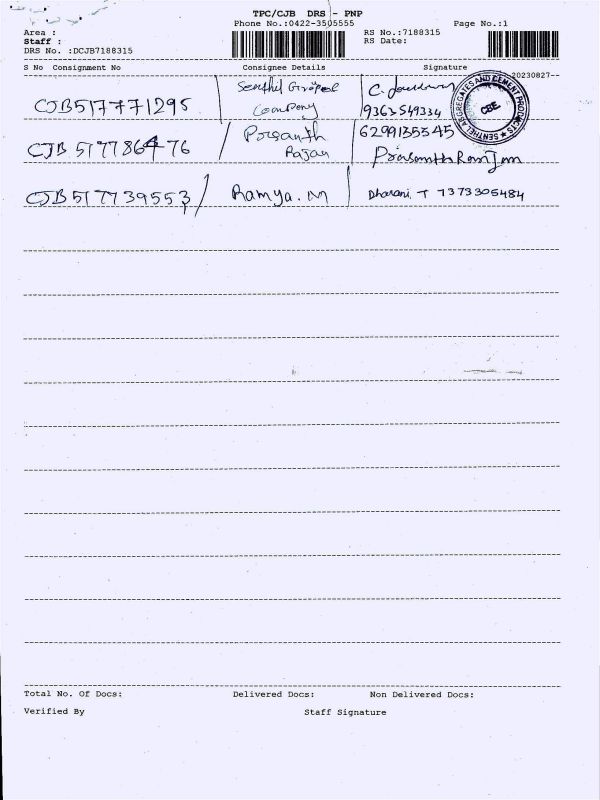 TPC/CJB DRS - PNP
Phone No.:0422-3505555 Page No.:1
Area :
RS No.:7188315
Staff :
RS Date:
DRS No. :DCJB7188315
S No Consignment No Consignee Details Signature
20230827--
CJB517771295 Senthil Company C.
9363549334
SENTHIL AGGREGATES AND CEMENT PRODUCTS ★ CBE
CJB 517786476 Prasanth 6299135545
Rajan
CJB517739553 Ramya. M Dharani. T 7373305484
Total No. Of Docs: Delivered Docs: Non Delivered Docs:
Verified By Staff Signature